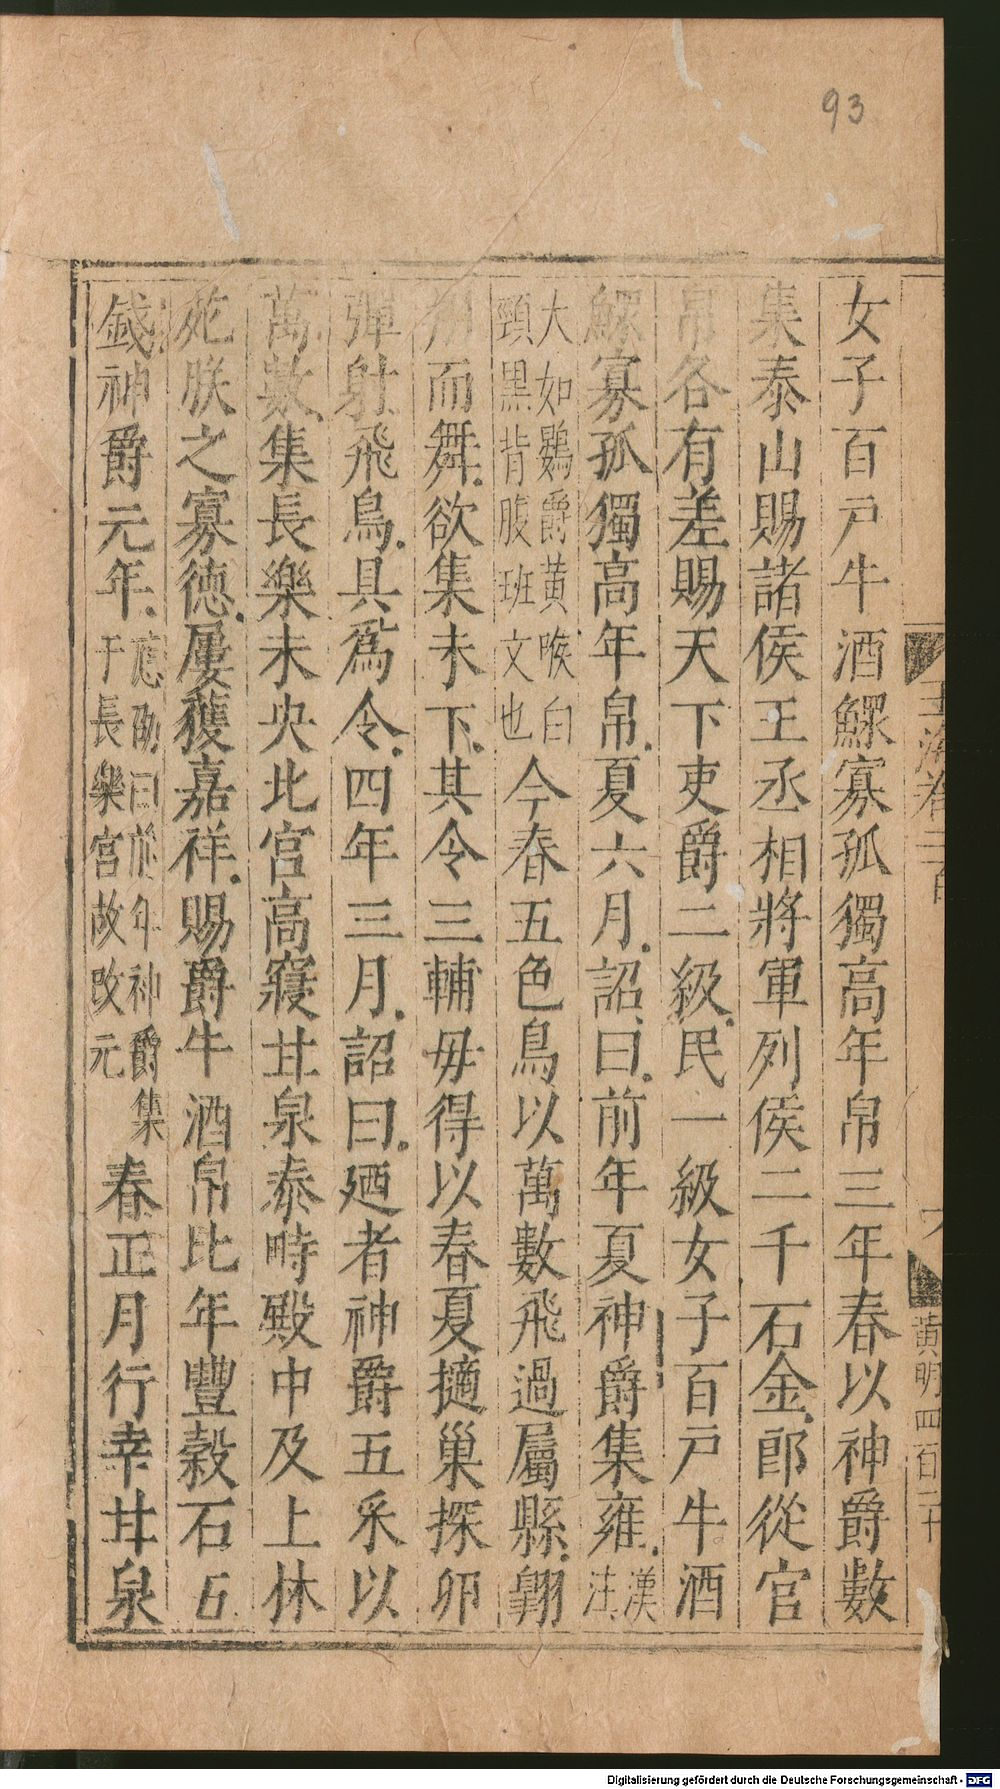 93
女子百戸牛酒鰥寡孤獨高年帛三年春以神爵數
集泰山賜諸侯王丞相將軍列侯二千石金郎從官
帛各有差賜天下吏爵二級民一級女子百戸牛酒
鰥寡孤獨高年帛夏六月詔曰前年夏神爵集雍漢注
大如鷃爵黄喉白
頸黒背腹班文也
今春五色鳥以萬數飛過屬縣翱
翔而舞欲集未下其令三輔毋得以春夏擿巢探卵
彈射飛鳥具爲令四年三月詔曰廼者神爵五采以
萬數集長樂未央北宫高寢甘泉泰畤殿中及上林
苑朕之寡德屢獲嘉祥賜爵牛酒帛比年豐穀石五
錢神爵元年
應劭曰於年神爵集
于長樂宫故改元
春正月行幸甘泉
玉海卷二百
黄明四百二十
Digitalisierung gefördert durch die Deutsche Forschungsgemeinschaft - DFG